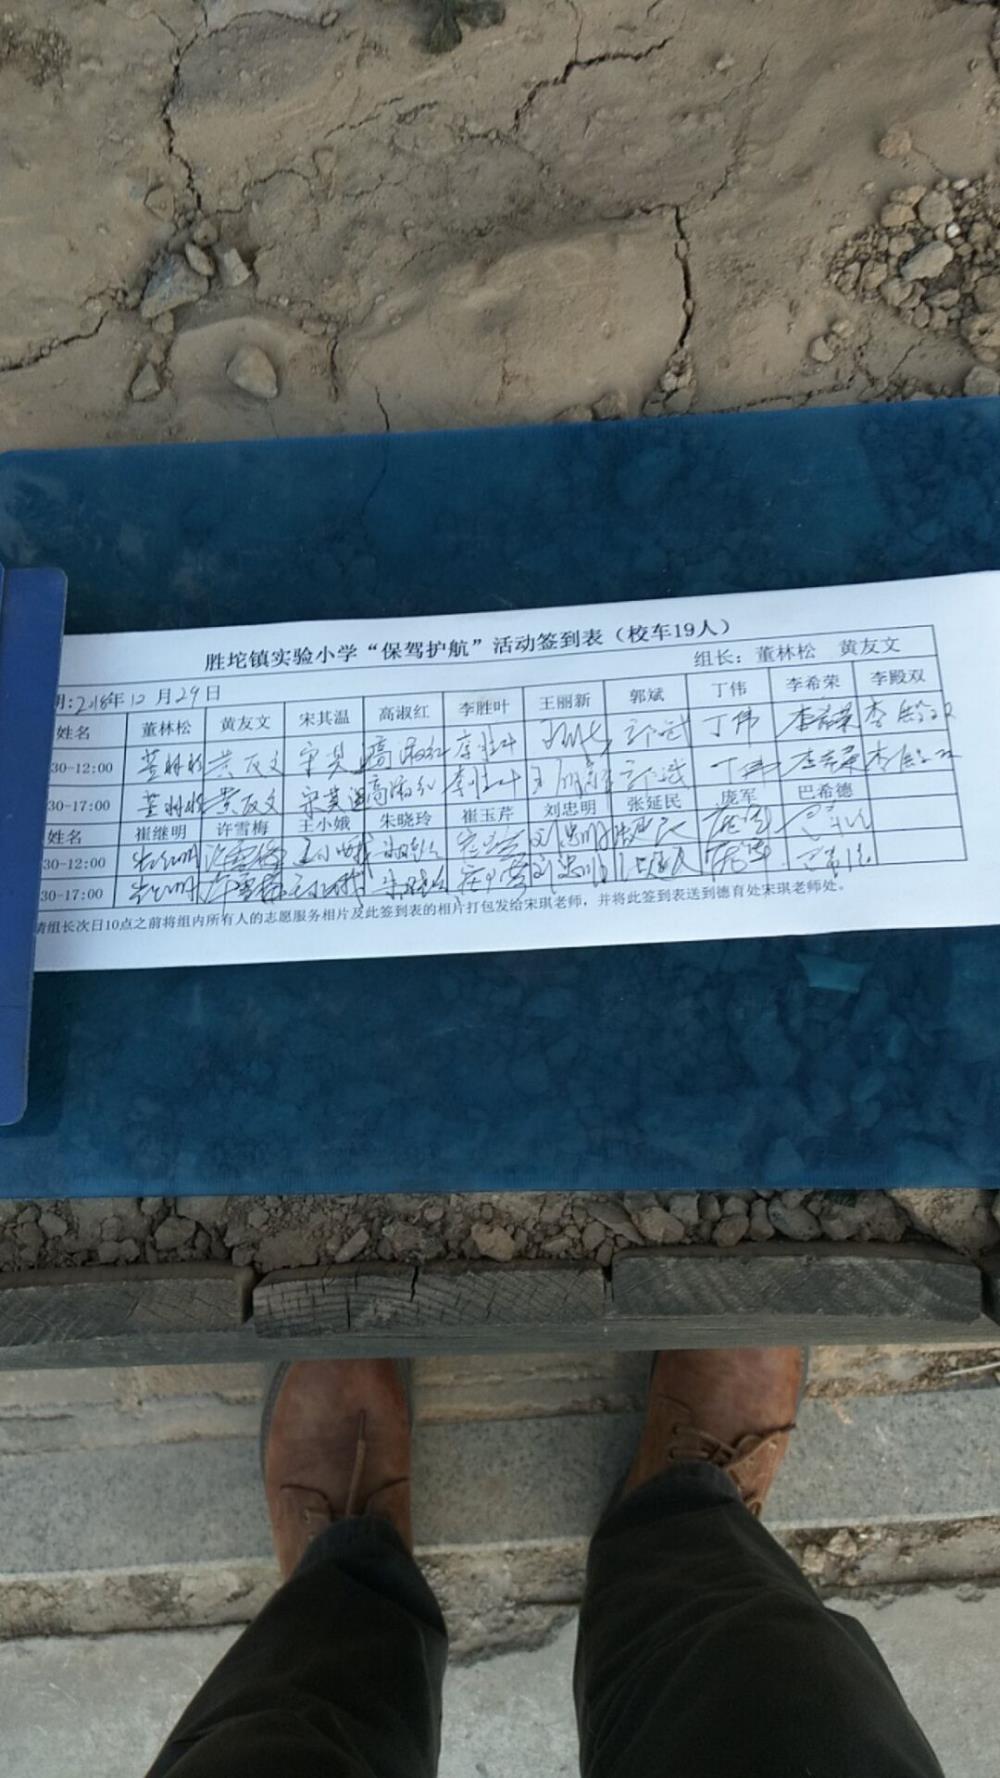 胜坨镇实验小学“保驾护航”活动签到表（校车19人）
期:2018年12月29日 组长：董林松 黄友文
姓名 董林松 黄友文 宋其温 高淑红 李胜叶 王丽新 郭斌 丁伟 李希荣 李殿双
30-12:00 董林松 黄友文 高淑红 李胜叶 丁伟 李希荣
30-17:00 董林松 黄友文 宋其温 高淑红 李胜叶 王丽新 丁伟 李希荣
姓名 崔继明 许雪梅 王小娥 朱晓玲 崔玉芹 刘忠明 张延民 庞军 巴希德
30-12:00 许雪梅 王小娥 刘忠明
30-17:00 许雪梅 刘忠明 张延民
请组长次日10点之前将组内所有人的志愿服务相片及此签到表的相片打包发给宋琪老师，并将此签到表送到德育处宋琪老师处。